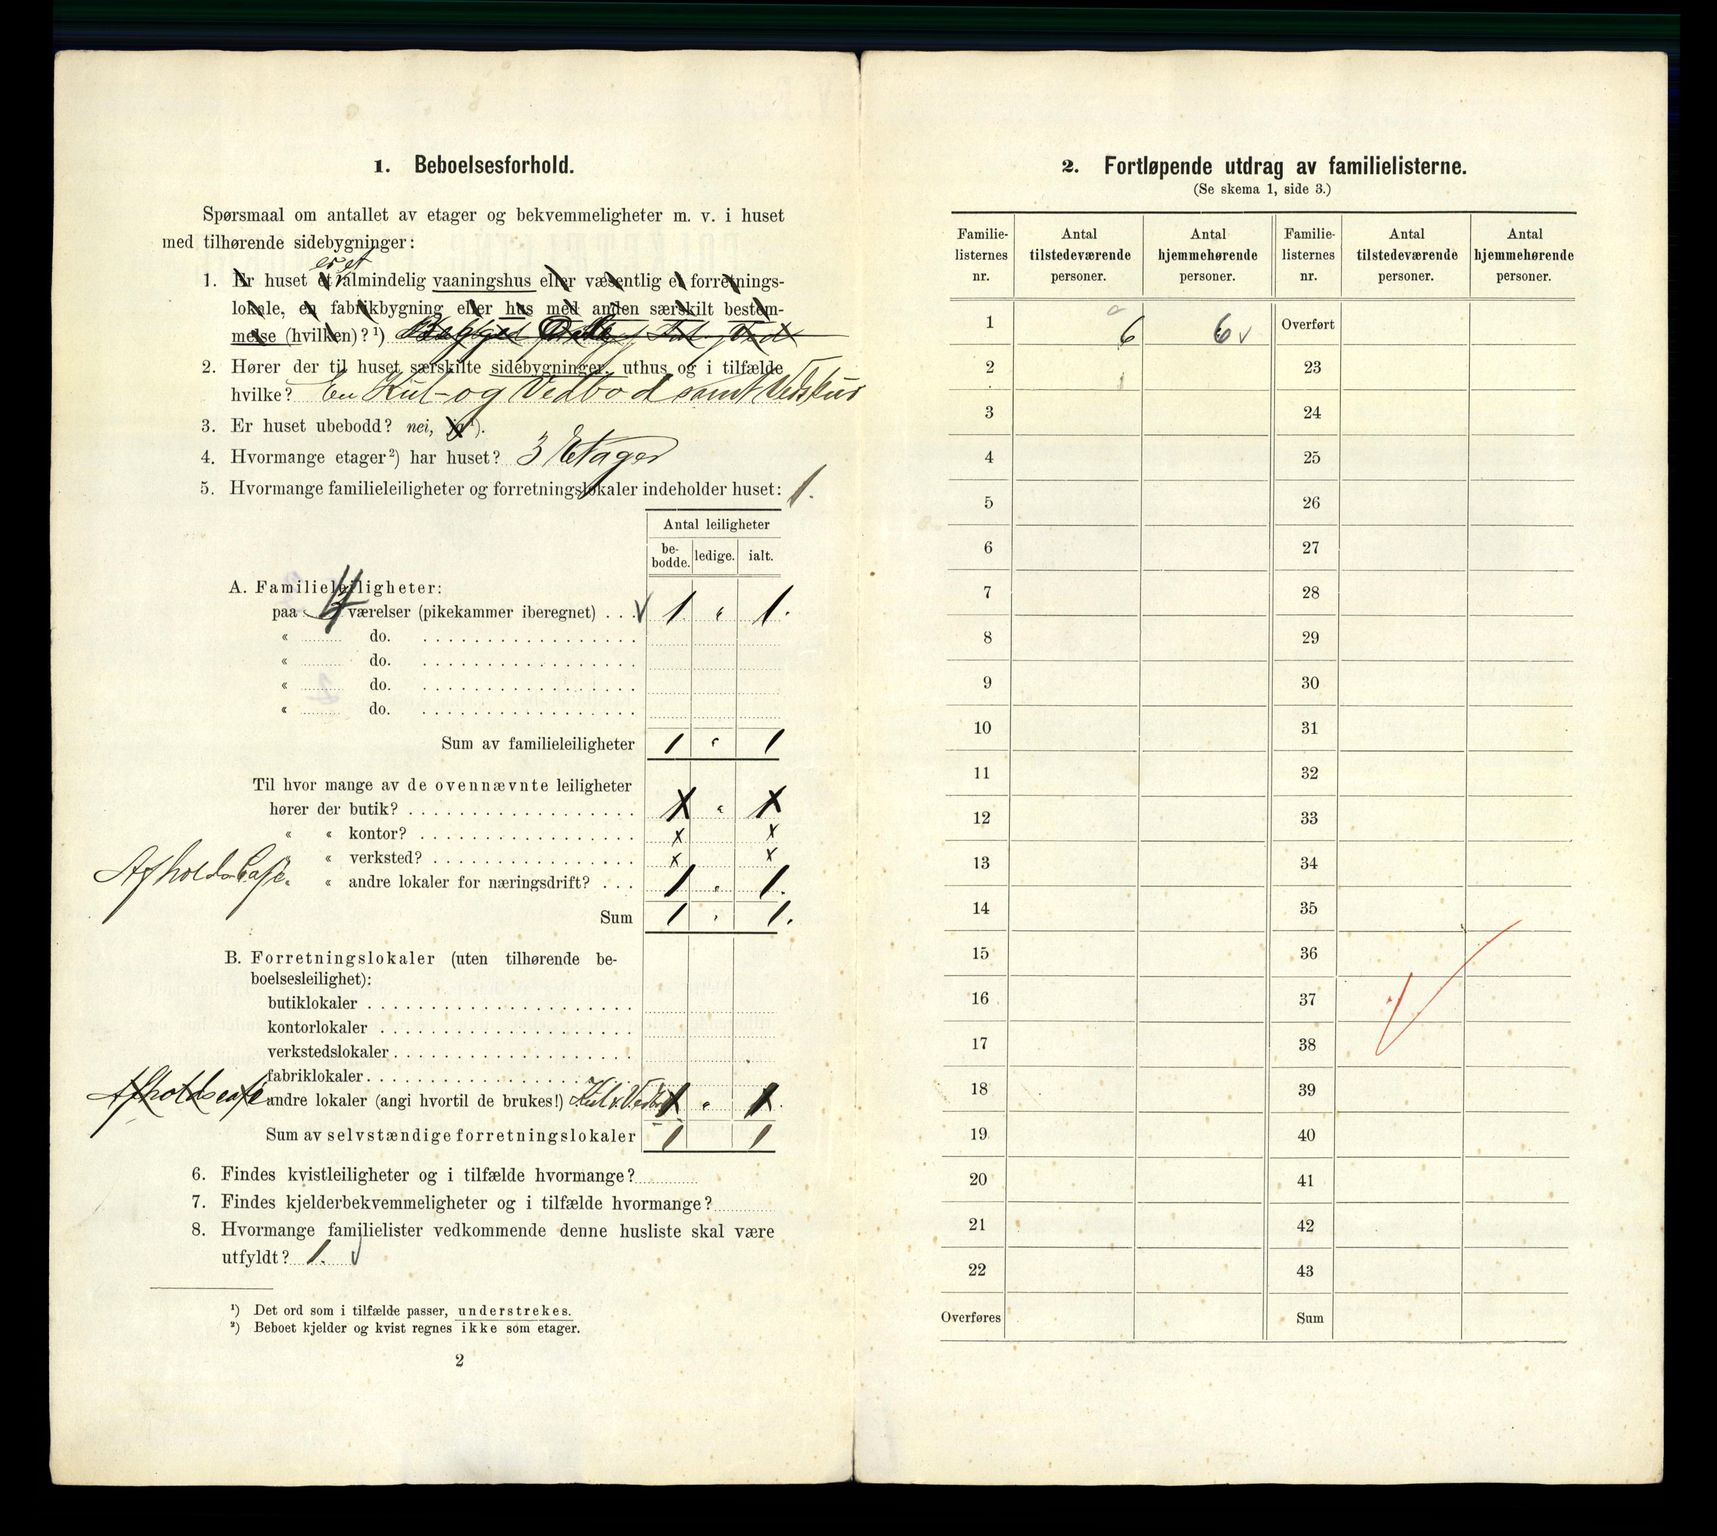 1. Beboelsesforhold.
Spørsmaal om antallet av etager og bekvemmeligheter m. v. i huset
med tilhørende sidebygninger:
er et
1. Er huset et almindelig vaaningshus eller væsentlig et forretnings-
lokale, en fabrikbygning eller hus med anden særskilt bestem-
melse (hvilken)? ¹)
2. Hører der til huset særskilte sidebygninger, uthus og i tilfælde
hvilke? En Kul- og Vedbod samt Vedskur
3. Er huset ubebodd? nei, ja ¹).
4. Hvormange etager ²) har huset? 3 Etager
5. Hvormange familieleiligheter og forretningslokaler indeholder huset: 1.
Antal leiligheter
be-
bodde. ledige. ialt.
A. Familieleiligheter:
paa 4 værelser (pikekammer iberegnet) . . . √ 1 " 1.
« do.
« do.
« do.
« do.
Sum av familieleiligheter 1 " 1
Til hvor mange av de ovennævnte leiligheter
hører der butik? X " X
« « kontor? x x
« verksted? x x
Afholds Cafe. « andre lokaler for næringsdrift? . . . 1 " 1.
Sum 1 " 1.
B. Forretningslokaler (uten tilhørende be-
boelsesleilighet):
butiklokaler
kontorlokaler
verkstedslokaler
fabriklokaler
Afholdscafe andre lokaler (angi hvortil de brukes!) Kul & Vedbod 1 " 1.
Sum av selvstændige forretningslokaler 1 1
6. Findes kvistleiligheter og i tilfælde hvormange?
7. Findes kjelderbekvemmeligheter og i tilfælde hvormange?
8. Hvormange familielister vedkommende denne husliste skal være
utfyldt? 1. √
¹) Det ord som i tilfælde passer, understrekes.
²) Beboet kjelder og kvist regnes ikke som etager.
2
2. Fortløpende utdrag av familielisterne.
(Se skema 1, side 3.)
Familie- Antal Antal Familie- Antal Antal
listernes tilstedeværende hjemmehørende listernes tilstedeværende hjemmehørende
nr. personer. personer. nr. personer. personer.
1 6 6 √ Overført
2 23
3 24
4 25
5 26
6 27
7 28
8 29
9 30
10 31
11 32
12 33
13 34
14 35
15 36
16 37
17 38
18 39
19 40
20 41
21 42
22 43
Overføres Sum